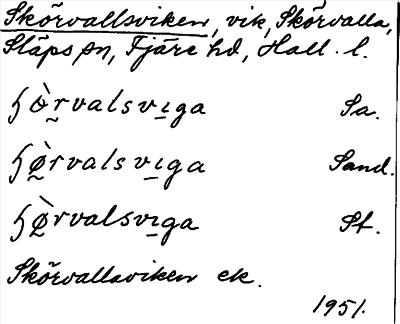 Skörvallsviken, vik, Skörvalla,
Släps sn, Fjäre hd, Hall. l.
ɧø̀rvalsvi̠ga Sa.
ɧø̠̀rvalsvi̠ga Sand.
ɧø̠̀rvalsvi̠ga St.
Skörvallaviken ek.
1951.